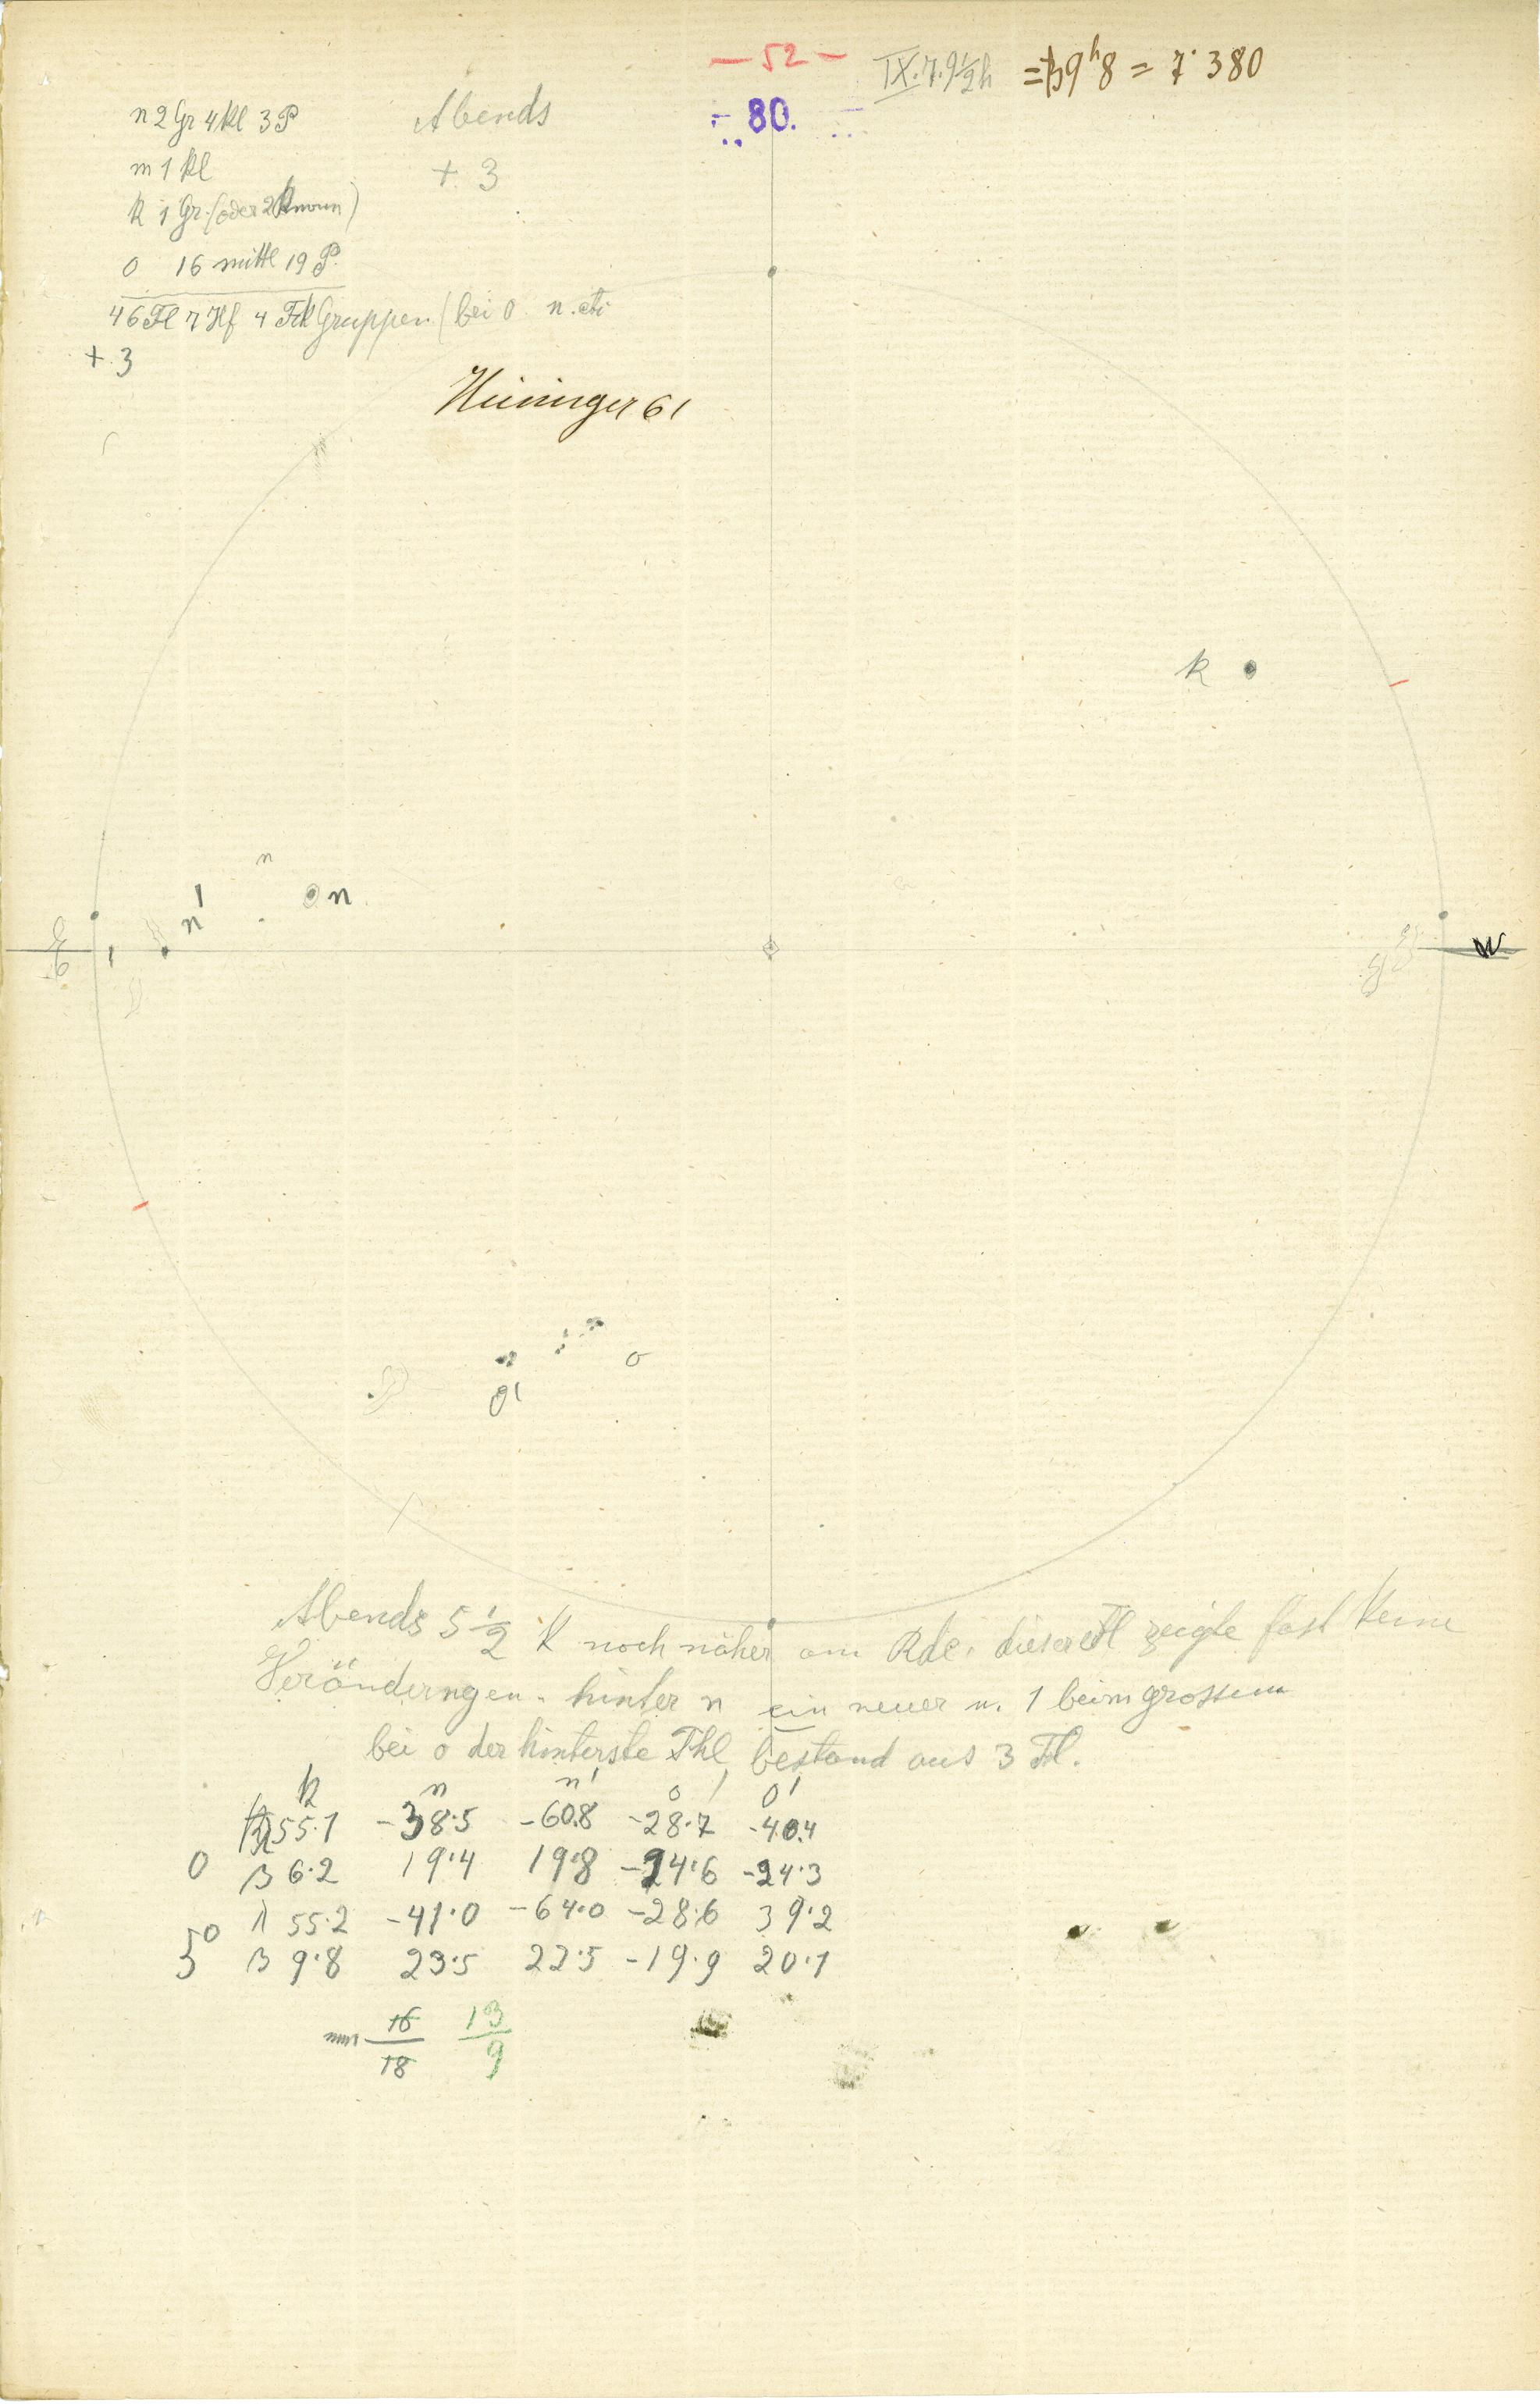 — 52 —
IX. 7. 9 1/2 h = 9h8 = 7·380
80.
n 2 Gr 4 kl 3 P
Abends
m 1 kl
+ 3
k 1 Gr. (oder 2
o 16 mittl 19 P.
46 Fl 7 Hf 4 Gruppen (bei o
+ 3
61
k
n
n
n'
W
o
o'
Abends 5 1/2 k noch näher am Rde. dieser Fl zeigte fast keine
Veränderngen. hinter n ein neuer u. 1 beim grossen
bei o der hinterste Thl bestand aus 3 Fl.
k n n' o o'
55·1 -38·5 -60.8 -28·7 -40.4
0 β 6·2 19·4 19·8 -24·6 -24·3
λ 55·2 -41·0 -64·0 -28·6 39·2
50 β 9·8 23·5 22·5 -19·9 20·1
16/18 13/9